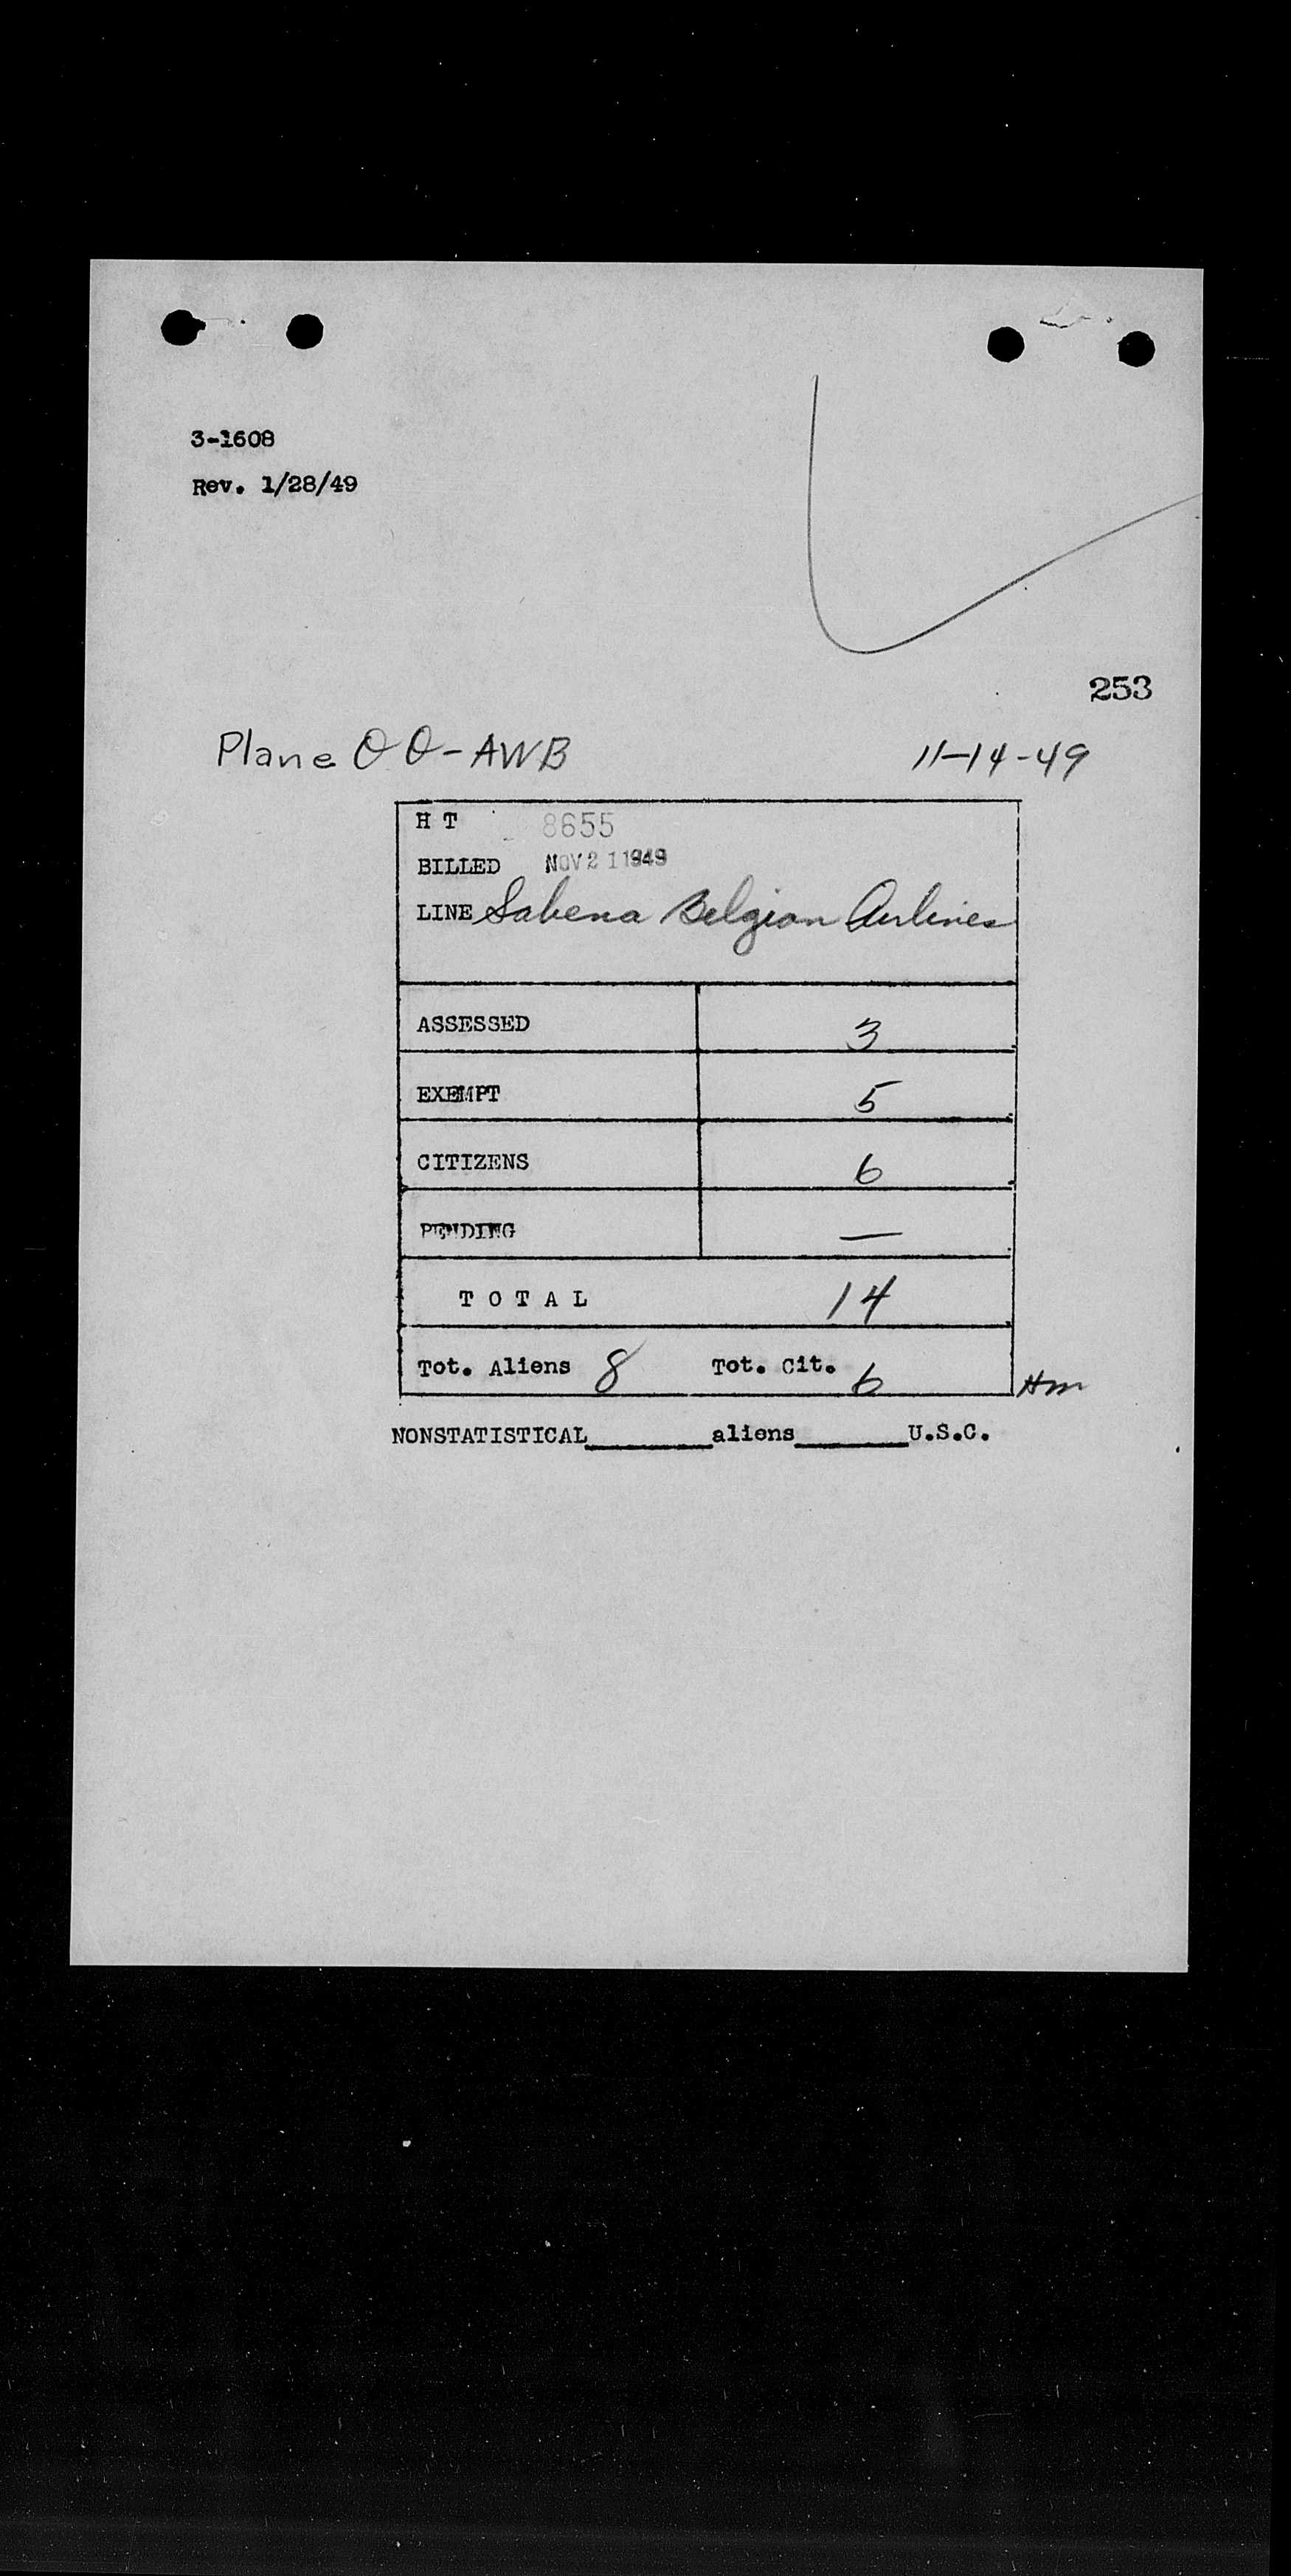 3-1608
Rev. 1/28/49
253
Plane OO-AWB 11-14-49
H T 8655
BILLED NOV 21 1949
LINE Sabena Belgian Airlines
ASSESSED 3
EXEMPT 5
CITIZENS 6
PENDING —
T O T A L 14
Tot. Aliens 8 Tot. Cit. 6 Hm
NONSTATISTICAL________aliens_______U.S.C.